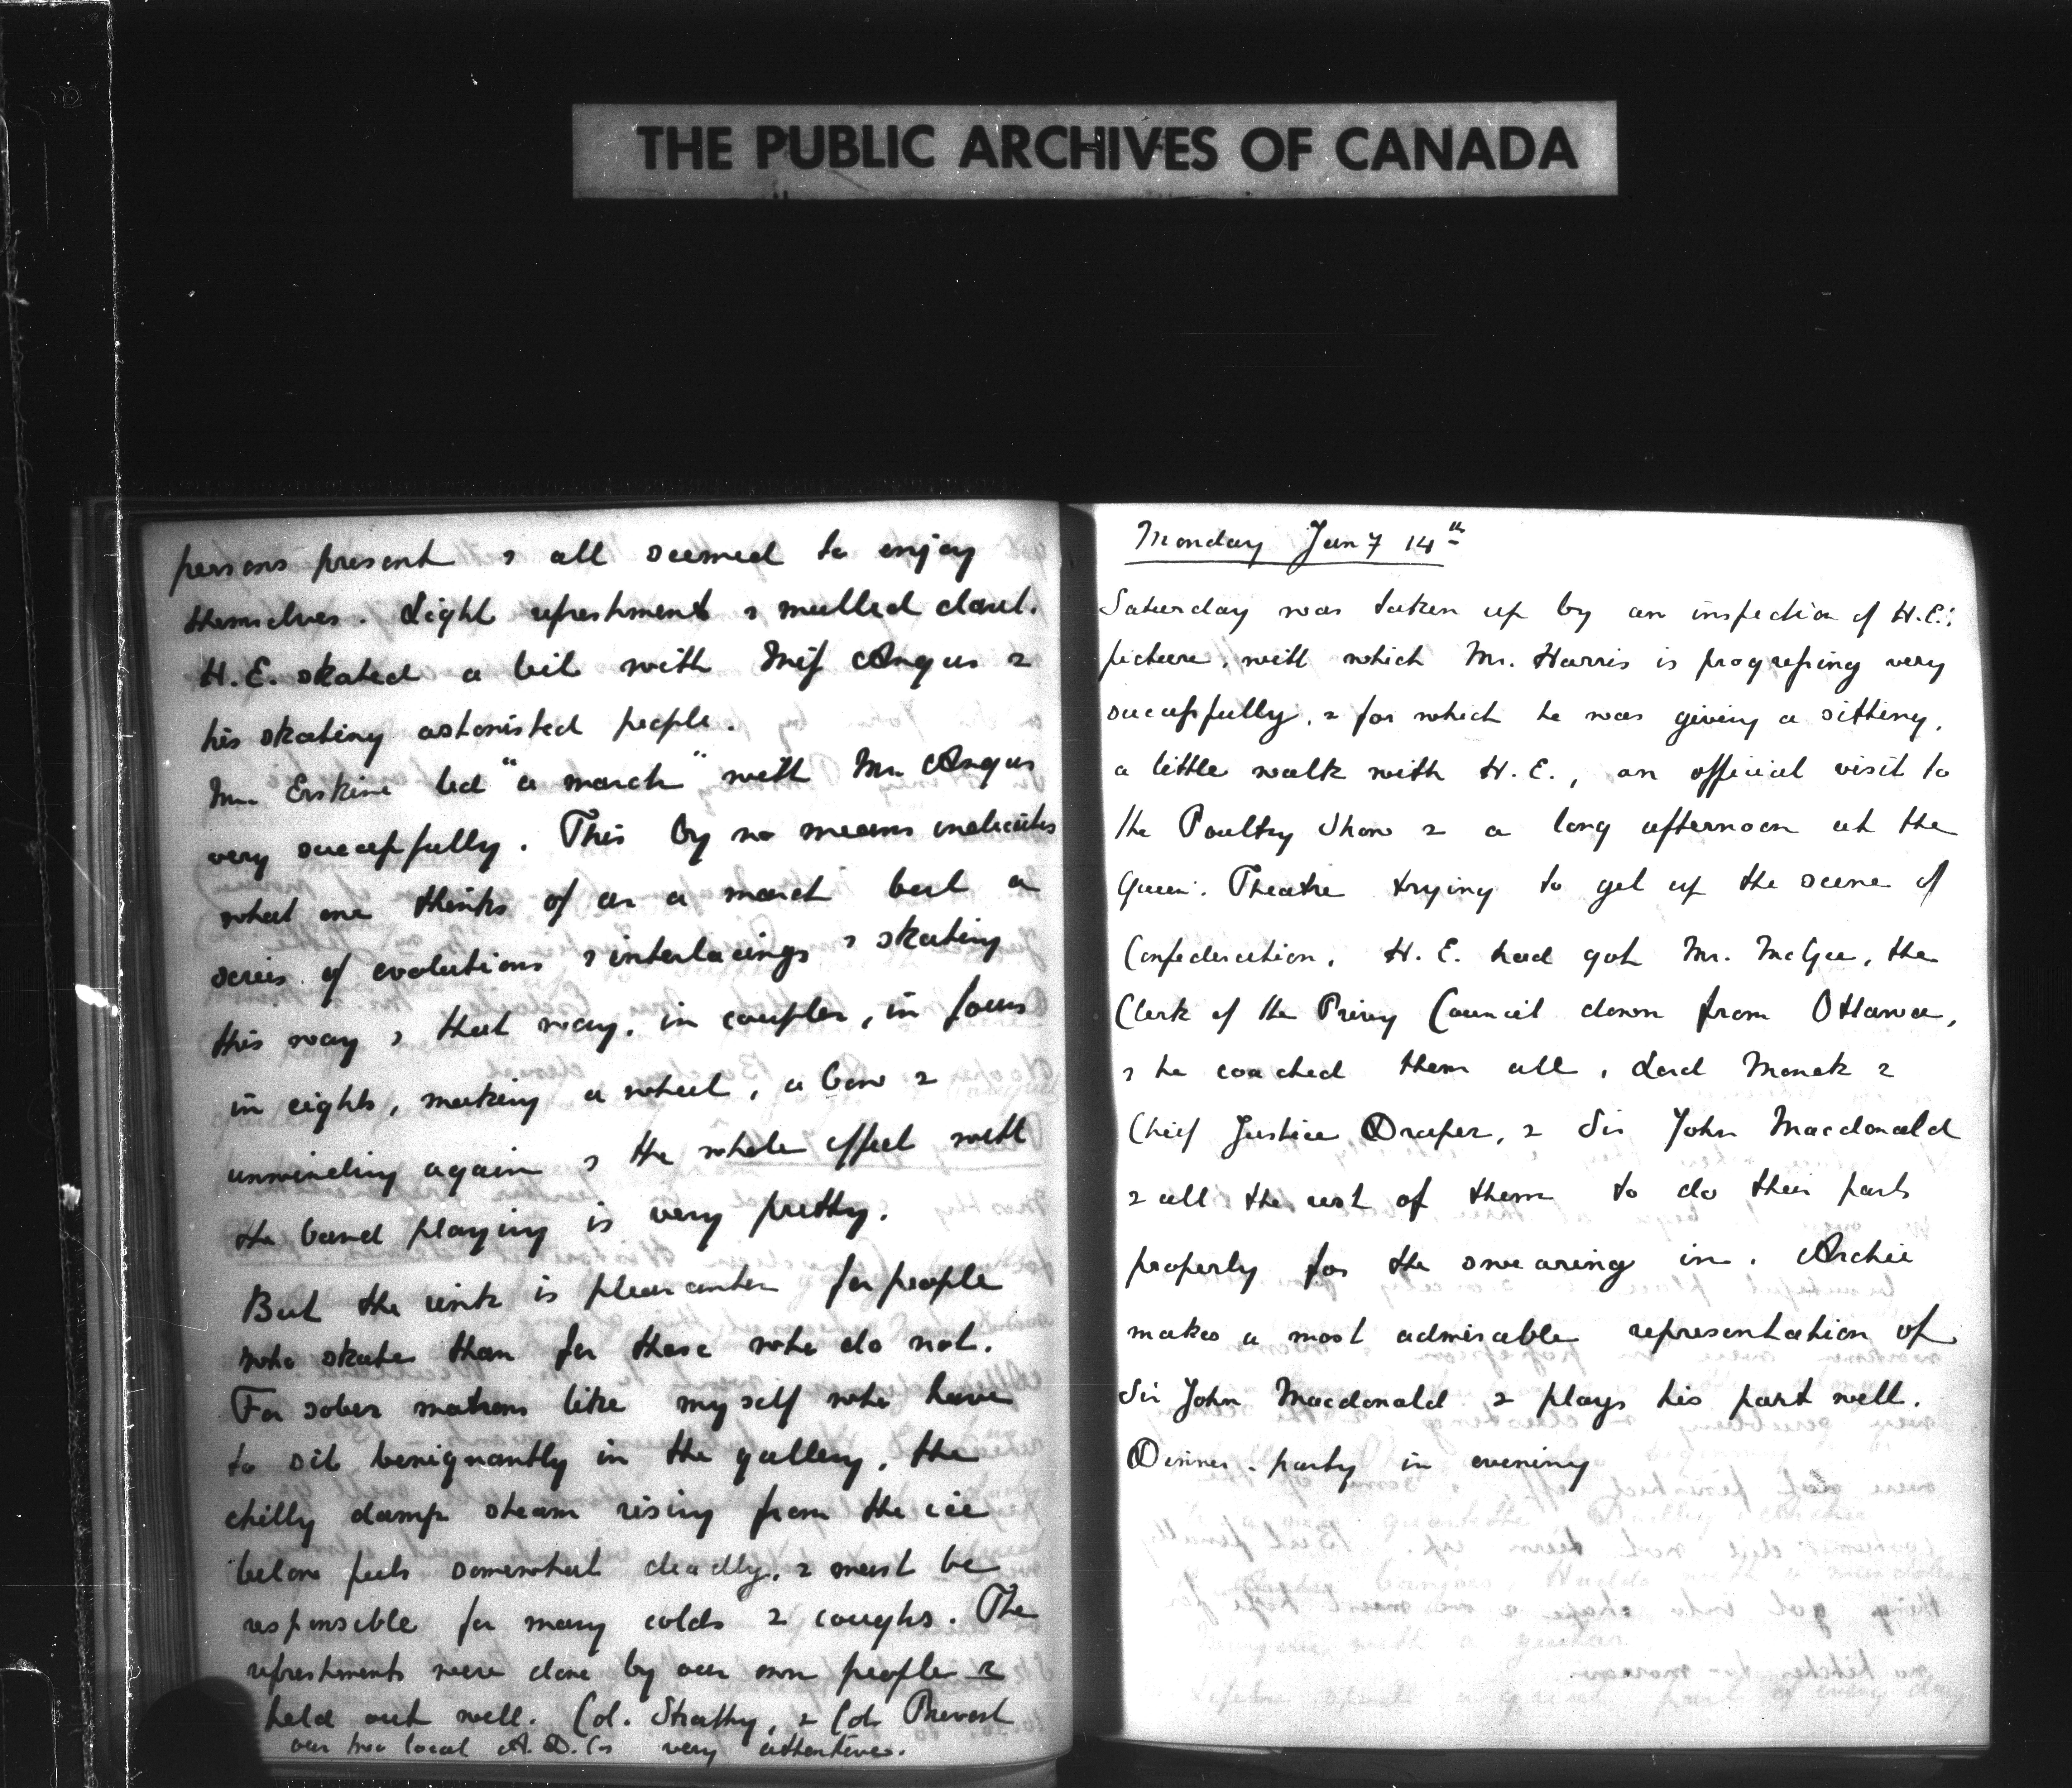 THE PUBLIC ARCHIVES OF CANADA
persons present & all seemed to enjoy
themselves. Light refreshments & mulled claret.
H.E. skated a bit with Miss Angus &
his skating astonished people.
Mr. Erskine led "a march" with Mr. Angus
very successfully. This by no means indicates
what one thinks of as a march but a
series of evolutions & interlacings & skating
this way & that way, in couples, in fours
in eights, making a wheel, a bow &
unwinding again & the whole effect with
the band playing is very pretty.
But the rink is pleasanter for people
who skate than for those who do not.
For sober matrons like myself who have
to sit benignantly in the gallery, the
chilly damp steam rising from the ice
below feels somewhat deadly, & must be
responsible for many colds & coughs. The
refreshments were done by our own people &
held out well. Col. Strathy, & Col. Prevost
our two local A.D.Cs very attentive.
Monday Jany 14th
Saturday was taken up by an inspection of H.E.'s
picture, with which Mr. Harris is progressing very
successfully, & for which he was giving a sitting,
a little walk with H.E., an official visit to
the Poultry Show & a long afternoon at the
Queen's Theatre trying to get up the scene of
Confederation. H.E. had got Mr. McGee, the
Clerk of the Privy Council down from Ottawa,
& he coached them all, Lord Monck &
Chief Justice Draper, & Sir John Macdonald
& all the rest of them to do their parts
properly for the swearing in. Archie
makes a most admirable representation of
Sir John Macdonald & plays his part well.
Dinner-party in evening